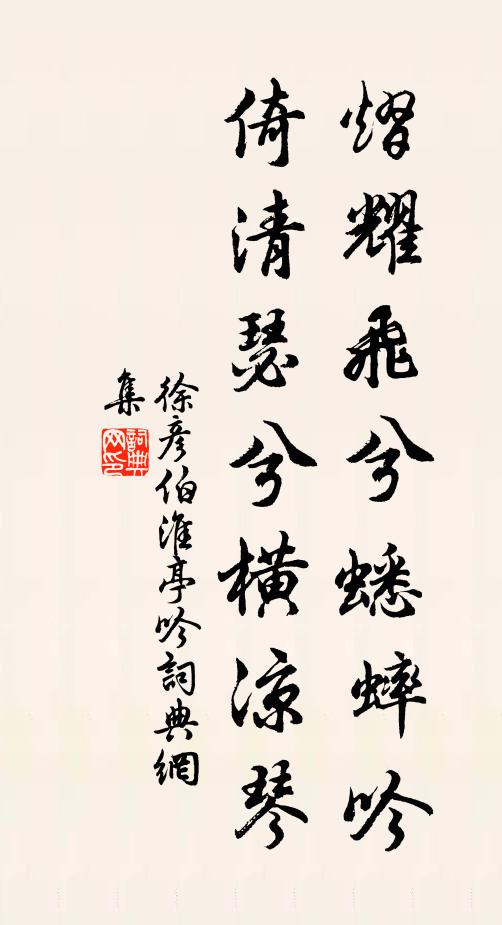 熠耀飛兮蟋蟀吟
倚清瑟兮橫涼琴
徐彥伯淮亭吟詞典網
集
詞典
网印